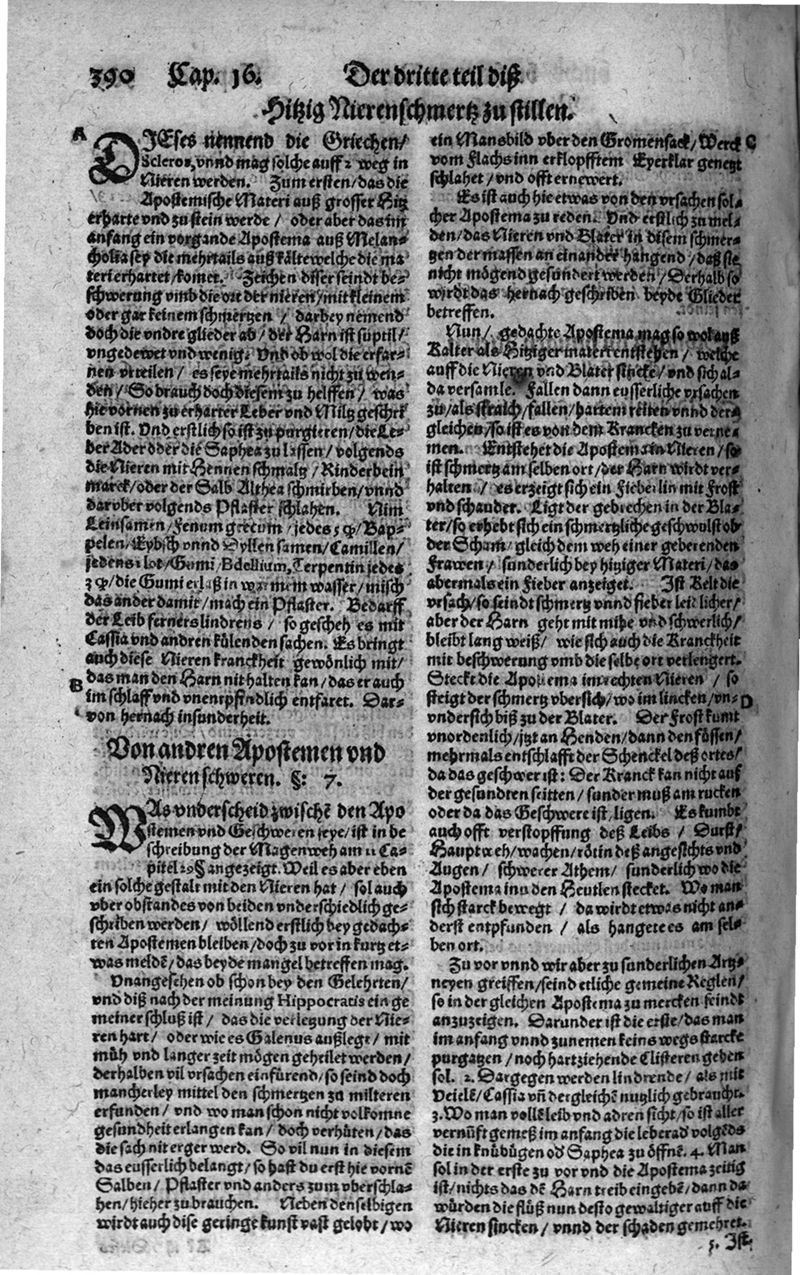 390 Cap. 16. Der dritte teil diß
Hitzig Nierenschmertz zu stillen.
A
DIEses nennend die Griechen/
Scleros, vnnd mag solche auff 2 weg in
Nieren werden. Zum ersten/das die
Apostemische Materi auß grosser Hitz
erharte vnd zu stein werde / oder aber das im
anfang ein vorgande Apostema auß Melan-
cholia sey die mehrtails auß kälte welche die ma
teri erhartet/komet. Zeichen diser seindt be-
schwerung vmb die ort der nieren/mit kleinem
oder gar keinem schmertzen / darbey nemend
doch die vndre glieder ab/ der Harn ist süptil/
vngedewet vnd wenig. Vnd ob wol die erfar-
nen vrteilen/ es seye mehrtails nicht zu wen-
den/ So brauch doch diesem zu helffen/ was
hievornen zu erharter Leber vnd Miltz geschri
ben ist. Vnd erstlich so ist zu purgieren/die Le-
ber Ader oder die Saphea zu lassen/ volgends
die Nieren mit Hennen schmaltz/ Rinderbein
marck/oder der Salb Althea schmirben/vnnd
darüber volgends Pflaster schlahen. Nim
Leinsamen/Fenum grecum/jedes
pelen/Eybisch vnnd Dyllen samen/Camillen/
jedens 1 lot/Gumi Bdellium, Terpentin jedes
die Gumi erlaß in warmem wasser/misch
das ander damit/mach ein Pflaster. Bedarff
der Leib ferners lindrens / so gescheh es mit
Cassia vnd andren külenden sachen. Es bringt
auch diese Nieren kranckheit gewönlich mit/
das man den Harn nit halten kan/das er auch
B
im schlaff vnd vnentpfindlich entfaret. Dar-
von hernach insunderheit.
Von andren Apostemen vnd
Nieren schweren. §: 7.
WAs vnderscheid zwischē den Apo
stemen vnd Geschweren seye/ist in be
schreibung der Magenweh am 11 Ca-
pitel angezeigt. Weil es aber eben
ein solche gestalt mit den Nieren hat / sol auch
vber obstandes von beiden vnderschiedlich ge-
schriben werden/ wöllend erstlich bey gedach-
ten Apostemen bleiben/doch zu vor in kurtz et-
was meldē/das beyde mangel betreffen mag.
Vnangesehen ob schon bey den Gelehrten/
vnd diß nach der meinung Hippocratis ein ge
meiner schluß ist / das die verletzung der Nie-
ren hart / oder wie es Galenus außlegt/ mit
müh vnd langer zeit mögen geheilet werden/
derhalben vil vrsachen einfürend/so seind doch
mancherley mittel den schmertzen zu milteren
erfunden/ vnd wo man schon nicht volkomne
gesundheit erlangen kan/ doch verhüten/das
die sach nit erger werd. So vil nun in diesem
das eusserlich belangt/so hast du erst hie vornē
Salben/ Pflaster vnd anders zum vberschla-
hen/hieher zu brauchen. Neben denselbigen
wirdt auch dise geringe kunst vast gelobt/wo
ein Mansbild vber den Gromensack/Werck
C
vom Flachs inn erklopfftem Eyerklar genetzt
schlahet/vnd offt ernewert.
Es ist auch hie etwas von den vrsachen sol-
cher Apostema zu reden. Vnd erstlich zu mel-
den/das Nieren vnd Blater in disem schmer-
tzen der massen an einander hangend/ daß sie
nicht mögend gesündert werden/ Derhalb so
wirdt das hernach geschriben beyde Glieder
betreffen.
Nun/ gedachte Apostema mag so wol auß
Kalter als Hitziger materi entstehen/ welche
auff die Nieren vnd Blater sincke/ vnd sich al-
da versamle. Fallen dann eusserliche vrsachen
zu/als straich/fallen/hartem reiten vnnd der-
gleichen/so ist es von dem Krancken zu verne-
men. Entstehet die Apostema in Nieren/ so
ist schmertz am selben ort/der Harn wirdt ver-
halten / es erzeigt sich ein Fieberlin mit Frost
vnd schauder. Ligt der gebrechen in der Bla-
ter/so erhebt sich ein schmertzliche geschwulst ob
der Scham/gleich dem weh einer geberenden
Frawen/ sunderlich bey hitziger Materi/das
abermals ein Fieber anzeiget. Ist Kelt die
vrsach/so seindt schmertz vnnd fieber leidlicher/
aber der Harn geht mit mühe vnd schwerlich/
bleibt lang weiß/ wie sich auch die Kranckheit
mit beschwerung vmb die selbe ort verlengert.
Steckt die Apostema im rechten Nieren / so
steigt der schmertz vbersich/wo im lincken/vn-
D
vndersich biß zu der Blater. Der Frost kumt
vnordenlich/jtzt an Henden/dann den füssen/
mehrmals entschlafft der Schenckel deß ortes/
da das geschwer ist: Der Kranck kan nicht auf
der gesundten seitten/ sunder muß am rucken
oder da das Geschwere ist, ligen. Es kumbt
auch offt verstopffung deß Leibs / Durst/
Hauptweh/wachen/rötin deß angesichts vnd
Augen/ schwerer Athem/ sunderlich wo die
Apostema inn den Heutlen stecket. Wo man
sich starck bewegt / da wirdt etwas nicht an-
derst entpfunden / als hangete es am sel-
ben ort.
Zu vor vnnd wir aber zu sunderlichen Artz-
neyen greiffen/seind etliche gemeine Reglen/
so in der gleichen Apostema zu mercken seindt
anzuzeigen. Darunder ist die erste/das man
im anfang vnnd zunemen keins wegs starcke
purgatzen / noch hartziehende Clisteren geben
sol. 2. Dargegen werden lindrende/ als mit
Veielē/Cassia vñ dergleichē nutzlich gebraucht.
3. Wo man vollē leib vnd adren sicht/so ist aller
vernůft gemeß im anfang die leberad' volgēds
die in knübügen od' Saphea zu öffnē. 4. Man
sol in der erste zu vor vnd die Apostema zeitig
ist/nichts das dē Harn treib eingebē/dann da
würden die flüß nun desto gewaltiger auff die
Nieren sincken/ vnnd der schaden gemehret.
5. Ist